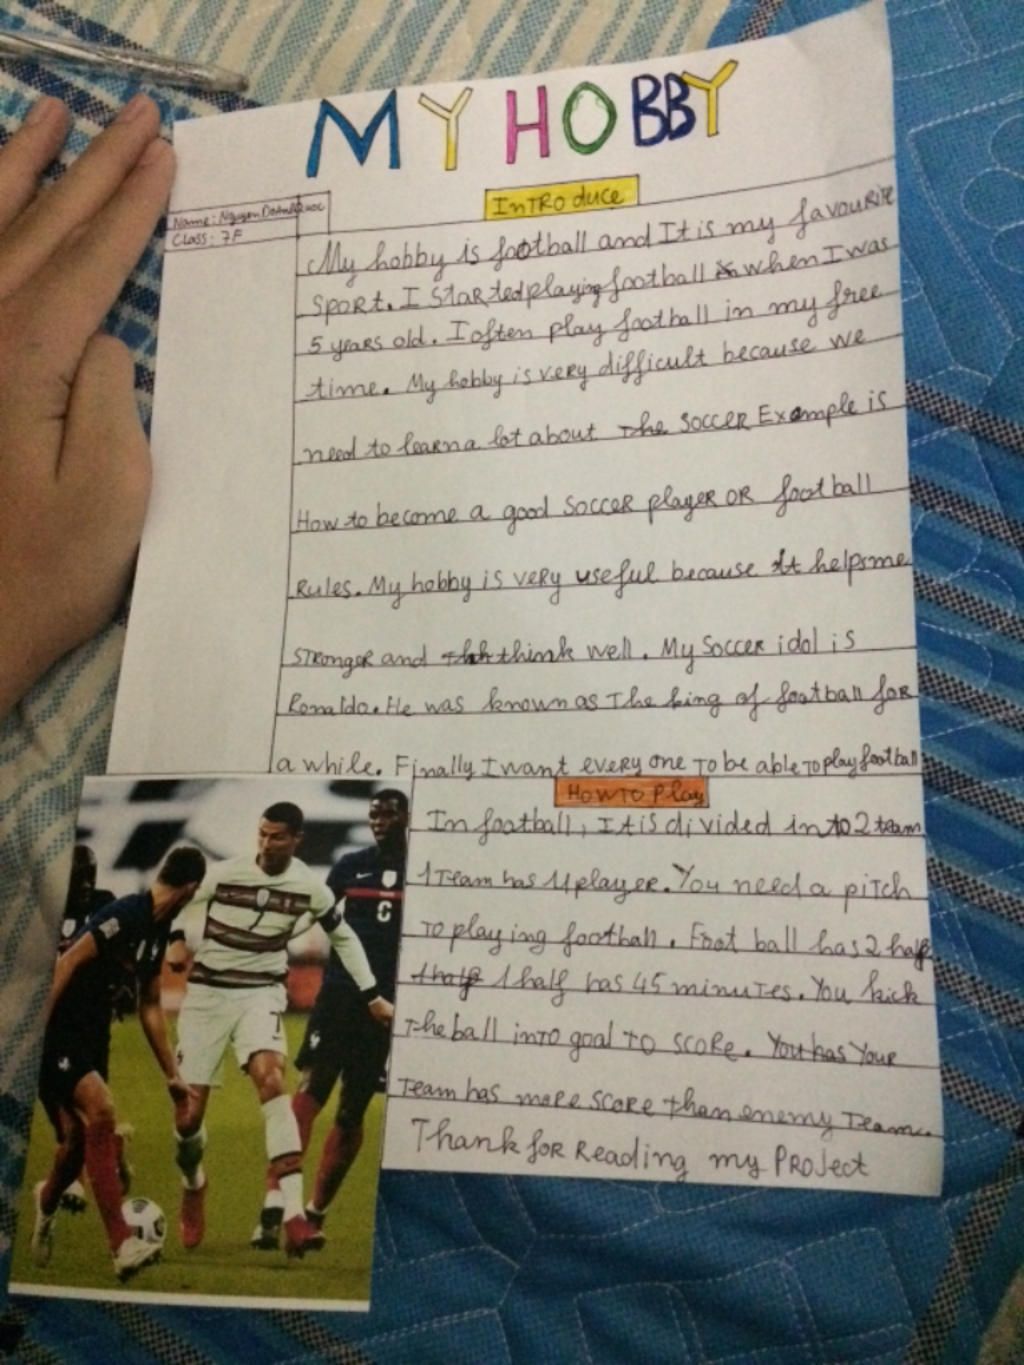 MY HOBBY
INTRO duce
Name: Nguyen
Class: 7F
My hobby is football and It is my favouRite
SpoRt. I StaRted playing football when I was
5 years old. I often play football in my free
time. My hobby is very difficult because we
need to leaRn a lot about The SocceR Example is
How to become a good SocceR playeR OR football
Rules. My hobby is veRy useful because It helps me
STRongeR and think well. My SocceR idol is
Ronaldo. He was known as The king of football foR
a while. Finally I want eveRy one To be able To play football
HOW TO Play
In football, It is divided in to 2 team
1 Team has 11 player. You need a piTch
To playing football. Foot ball has 2 half
1 half 1 half has 45 minuTes. You kick
The ball inTo goal To scoRe. You has YouR
Team has moRe scoRe than enemy Team.
Thank foR Reading my PRoJect
7
6
7